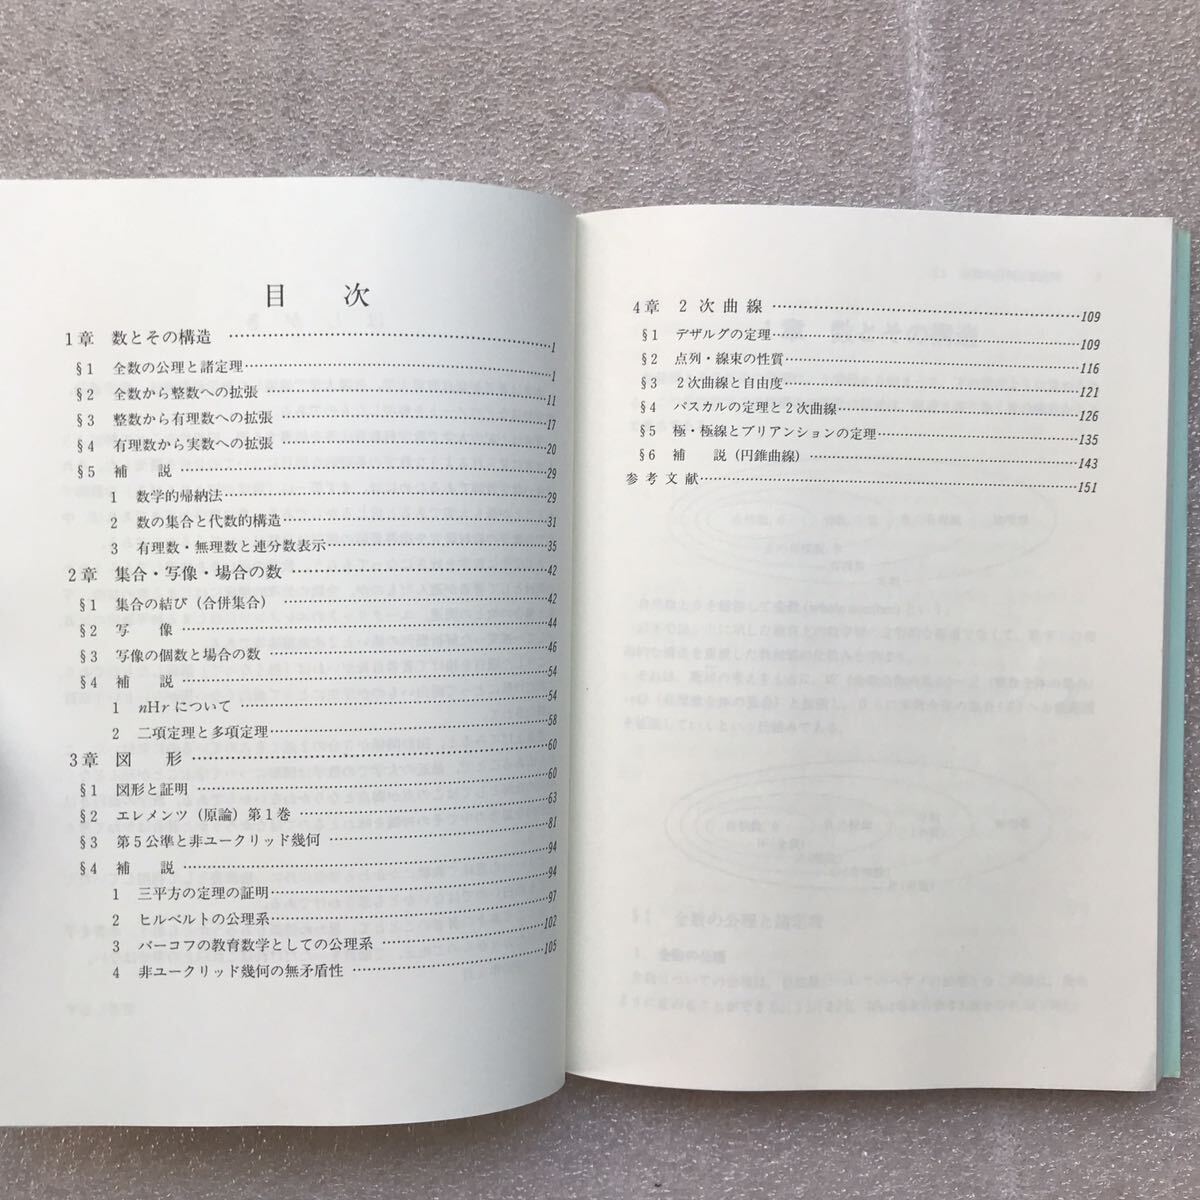 目 次
1章 数とその構造 ……… 1
§1 全数の公理と諸定理 ……… 1
§2 全数から整数への拡張 ……… 11
§3 整数から有理数への拡張 ……… 17
§4 有理数から実数への拡張 ……… 20
§5 補 説 ……… 29
1 数学的帰納法 ……… 29
2 数の集合と代数的構造 ……… 31
3 有理数・無理数と連分数表示 ……… 35
2章 集合・写像・場合の数 ……… 42
§1 集合の結び（合併集合） ……… 42
§2 写 像 ……… 44
§3 写像の個数と場合の数 ……… 46
§4 補 説 ……… 54
1 nHr について ……… 54
2 二項定理と多項定理 ……… 58
3章 図 形 ……… 60
§1 図形と証明 ……… 60
§2 エレメンツ（原論）第1巻 ……… 63
§3 第5公準と非ユークリッド幾何 ……… 81
§4 補 説 ……… 94
1 三平方の定理の証明 ……… 94
2 ヒルベルトの公理系 ……… 97
3 バーコフの教育数学としての公理系 ……… 102
4 非ユークリッド幾何の無矛盾性 ……… 105
4章 2次曲線 ……… 109
§1 デザルグの定理 ……… 109
§2 点列・線束の性質 ……… 116
§3 2次曲線と自由度 ……… 121
§4 パスカルの定理と2次曲線 ……… 126
§5 極・極線とブリアンションの定理 ……… 135
§6 補 説（円錐曲線） ……… 143
参考文献 ……… 151